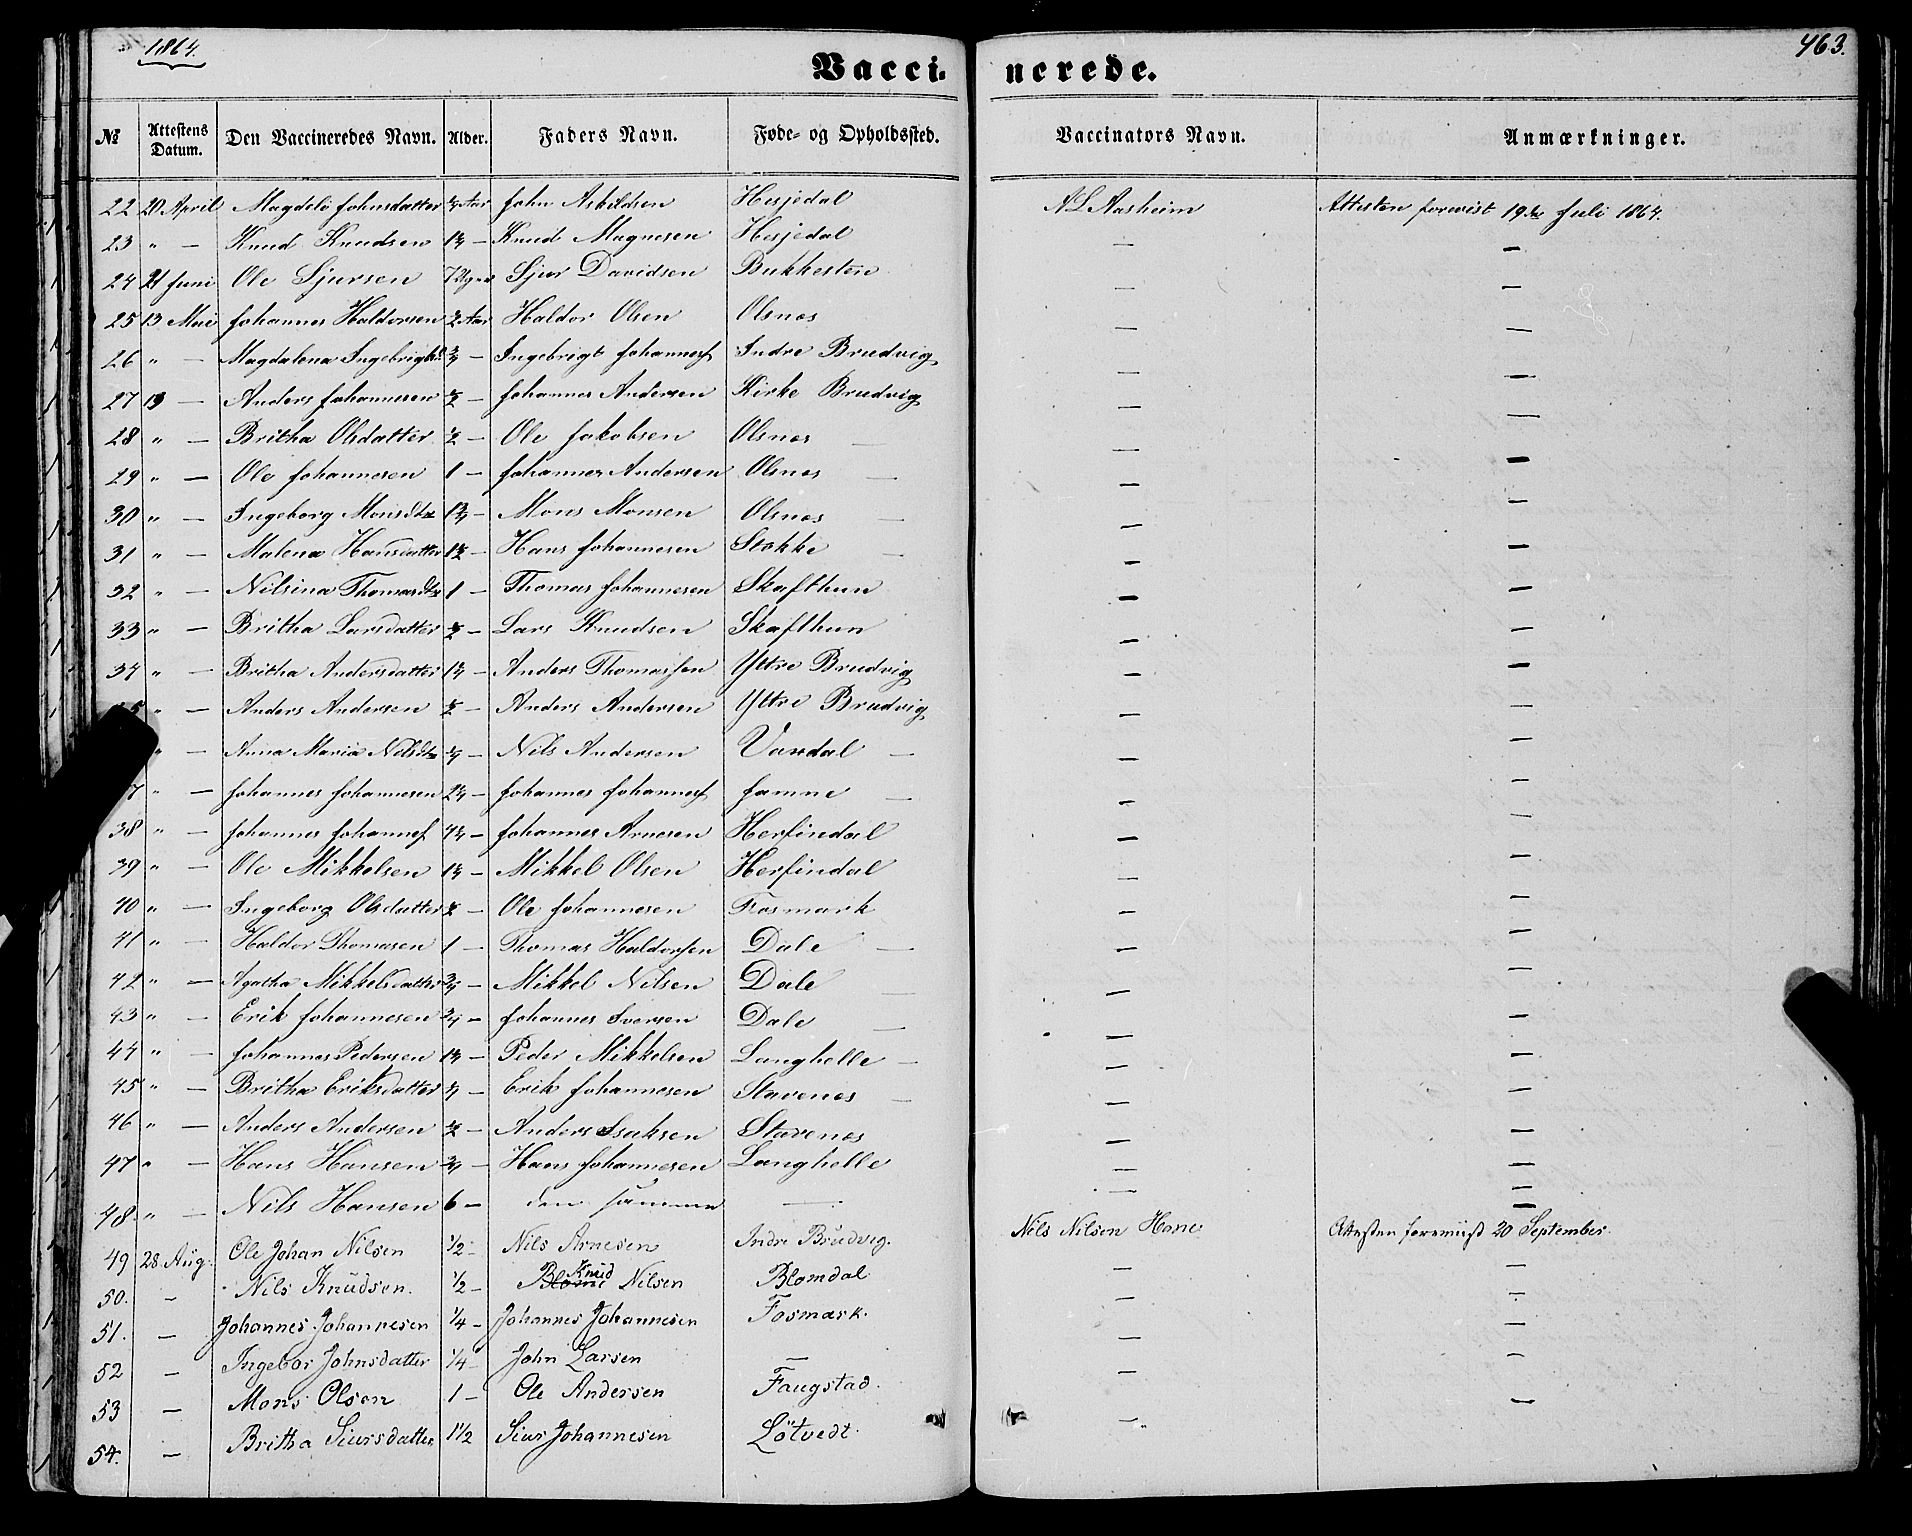 1864.
463.
Vaccinerede.
№ Attestens Datum. Den Vaccineredes Navn. Alder. Faders Navn. Føde- og Opholdssted. Vaccinators Navn. Anmærkninger.
22 20 April Magdeli Johnsdatter ¾ Aar John Askildsen Hesjedal A L Aasheim Attesten forevist 19de Juli 1864.
23 " — Knud Knudsen 1¾ — Knud Magnesen Hesjedal — —
24 21 Juni Ole Sjursen 7 Uger Sjur Davidsen Bukkesten — —
25 13 Mai Johannes Haldorsen ½ Aar Haldor Olsen Olsnes — —
26 " — Magdalena Ingebrigtsd ¾ — Ingebrigt Johannesf Indre Brudvig — —
27 13 — Anders Johannesen ½ — Johannes Andersen Kirke Brudvig — —
28 " — Britha Olsdatter ½ — Ole Jakobsen Olsnes — — —
29 " — Ole Johannesen 1 — Johannes Andersen Olsnes — — —
30 " — Ingeborg Monsdtr 1¾ — Mons Monsen Olsnes — — —
31 " — Malena Hansdatter 1½ — Hans Johannesen Stokke — — —
32 " — Nilsina Thomasdtr 1 — Thomas Johannesen Skafthun — —
33 " — Britha Larsdatter ½ — Lars Knudsen Skafthun — —
34 " — Britha Andersdatter 1¾ — Anders Thomassen Yttre Brudvig — —
35 " — Anders Andersen ½ — Anders Andersen Yttre Brudvig — —
" — Anna Maria Nilsdtr ¾ — Nils Andersen Vardal — — —
7 " — Johannes Johannesen 2¾ — Johannes Johannesf Jamne — — —
38 " — Johannes Johannesf 4¾ — Johannes Arnesen Herfindal — —
39 " — Ole Mikkelsen 1¾ — Mikkel Olsen Herfindal — —
40 " — Ingeborg Olsdatter ½ — Ole Johannesen Fosmark — —
41 " — Haldor Thomasen 1 — Thomas Haldorsen Dale — — —
42 " — Agatha Mikkelsdatter ¾ — Mikkel Nilsen Dale — — —
43 " — Erik Johannesen ¾ — Johannes Iversen Dale — — —
44 " — Johannes Pedersen 1¾ — Peder Mikkelsen Langhelle — — —
45 " — Britha Eriksdatter ¾ — Erik Johannesen Stavenes — — —
46 " — Anders Andersen ½ — Anders Isaksen Stavenes — —
47 " — Hans Hansen ¾ — Hans Johannesen Langhelle — —
48. " — Nils Hansen 6 — den samme — — —
49 28 Aug. Ole Johan Nilsen 1/2 — Nils Arnesen Indre Brudvig. Nils Nilsen Hane Attesten foreviist 20 September.
50. — Nils Knudsen. 1/2 — Knud Nilsen Blomdal — —
51. — Johannes Johannesen 1/4 — Johannes Johannesen Fosmark. — —
52 — Ingebor Johnsdatter 1/4 — John Larsen — — —
53 — Mons Olsen 1 — Ole Andersen Faugstad. — —
54. — Britha Siursdatter 1 1/2 Siur Johannesen Lötvedt. — "